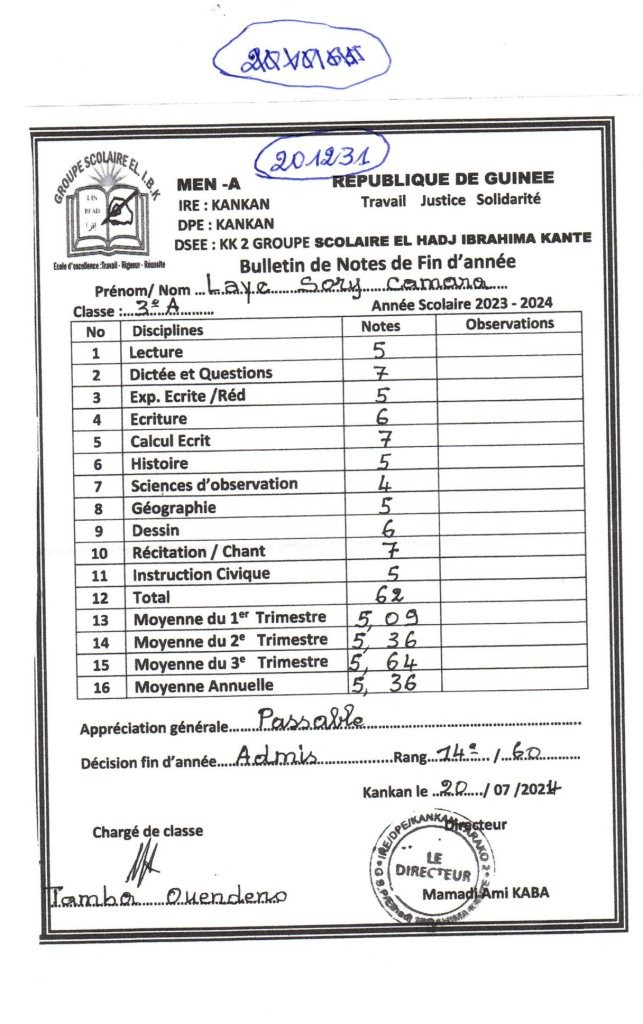 201231
GROUPE SCOLAIRE EL. I.B.K
LIS
READ
Ecole d'excellence :Travail - Rigueur - Réussite
MEN -A
REPUBLIQUE DE GUINEE
IRE : KANKAN
Travail Justice Solidarité
DPE : KANKAN
DSEE : KK 2 GROUPE SCOLAIRE EL HADJ IBRAHIMA KANTE
Bulletin de Notes de Fin d'année
Prénom/ Nom ... Laye Sory Camara
Classe :... 3e A
Année Scolaire 2023 - 2024
No Disciplines Notes Observations
1 Lecture 5
2 Dictée et Questions 7
3 Exp. Ecrite /Réd 5
4 Ecriture 6
5 Calcul Ecrit 7
6 Histoire 5
7 Sciences d'observation 4
8 Géographie 5
9 Dessin 6
10 Récitation / Chant 7
11 Instruction Civique 5
12 Total 62
13 Moyenne du 1er Trimestre 5,09
14 Moyenne du 2e Trimestre 5,36
15 Moyenne du 3e Trimestre 5,64
16 Moyenne Annuelle 5,36
Appréciation générale... Passable
Décision fin d'année... Admis Rang 14e / 60
Kankan le 20 / 07 /2024
Chargé de classe
Directeur
LE
DIRECTEUR
Tamba Ouendeno
Mamadi Ami KABA